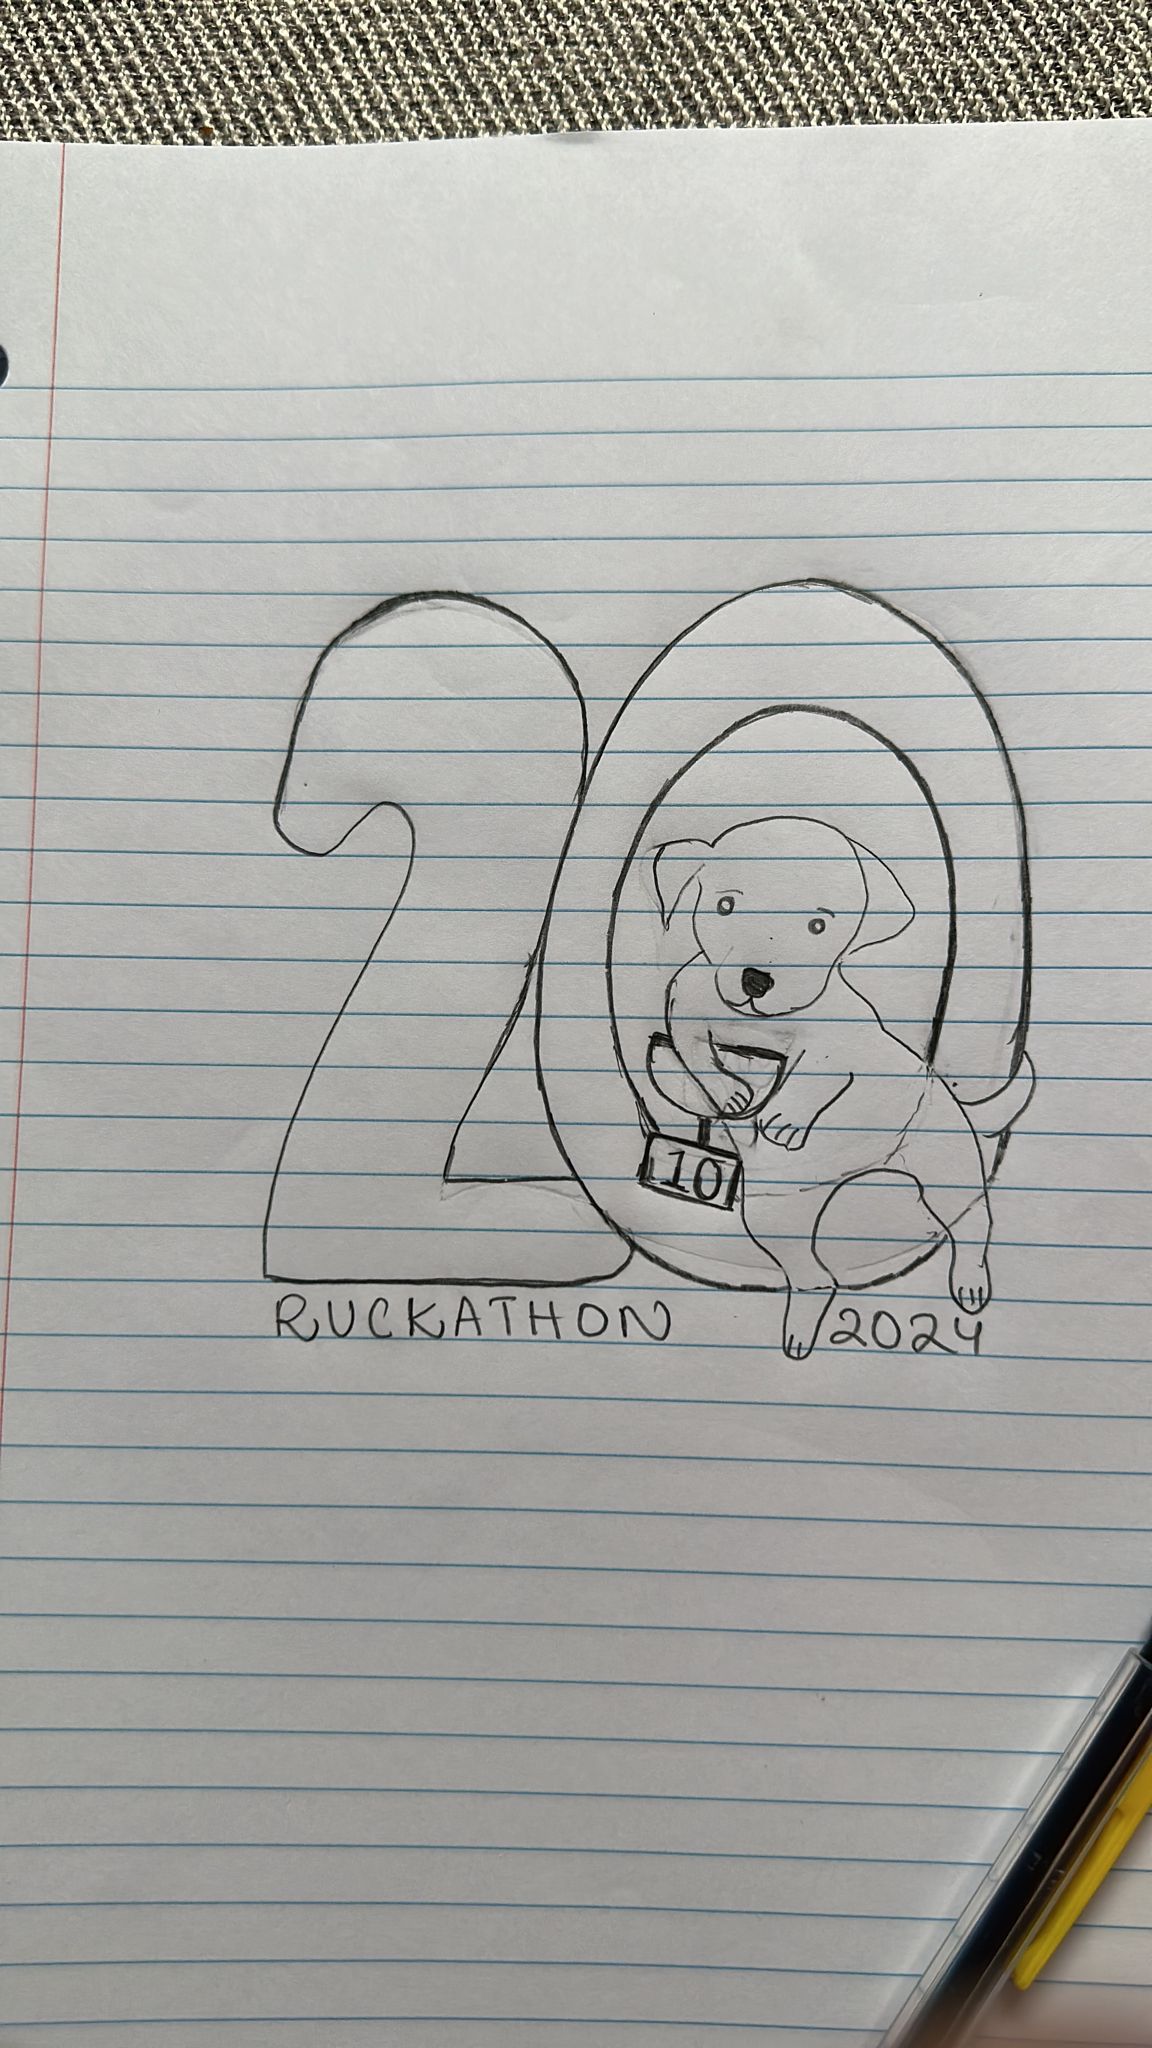 20
10
RUCKATHON 2024